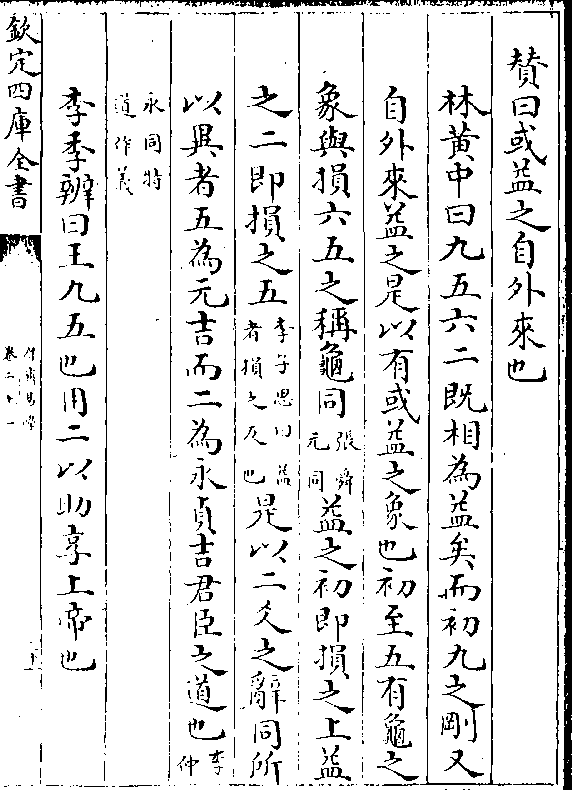 賛曰或益之自外來也
林黄中曰九五六二既相為益矣而初九之剛又
自外來益之是以有或益之象也初至五有龜之
象與損六五之稱龜同張舜元同益之初即損之上益
之二即損之五李子思曰益者損之反也是以二爻之辭同所
以異者五為元吉而二為永貞吉君臣之道也李仲
永同特道作義
李季辨曰王九五也用二以助享上帝也
欽定四庫全書
卷二十一